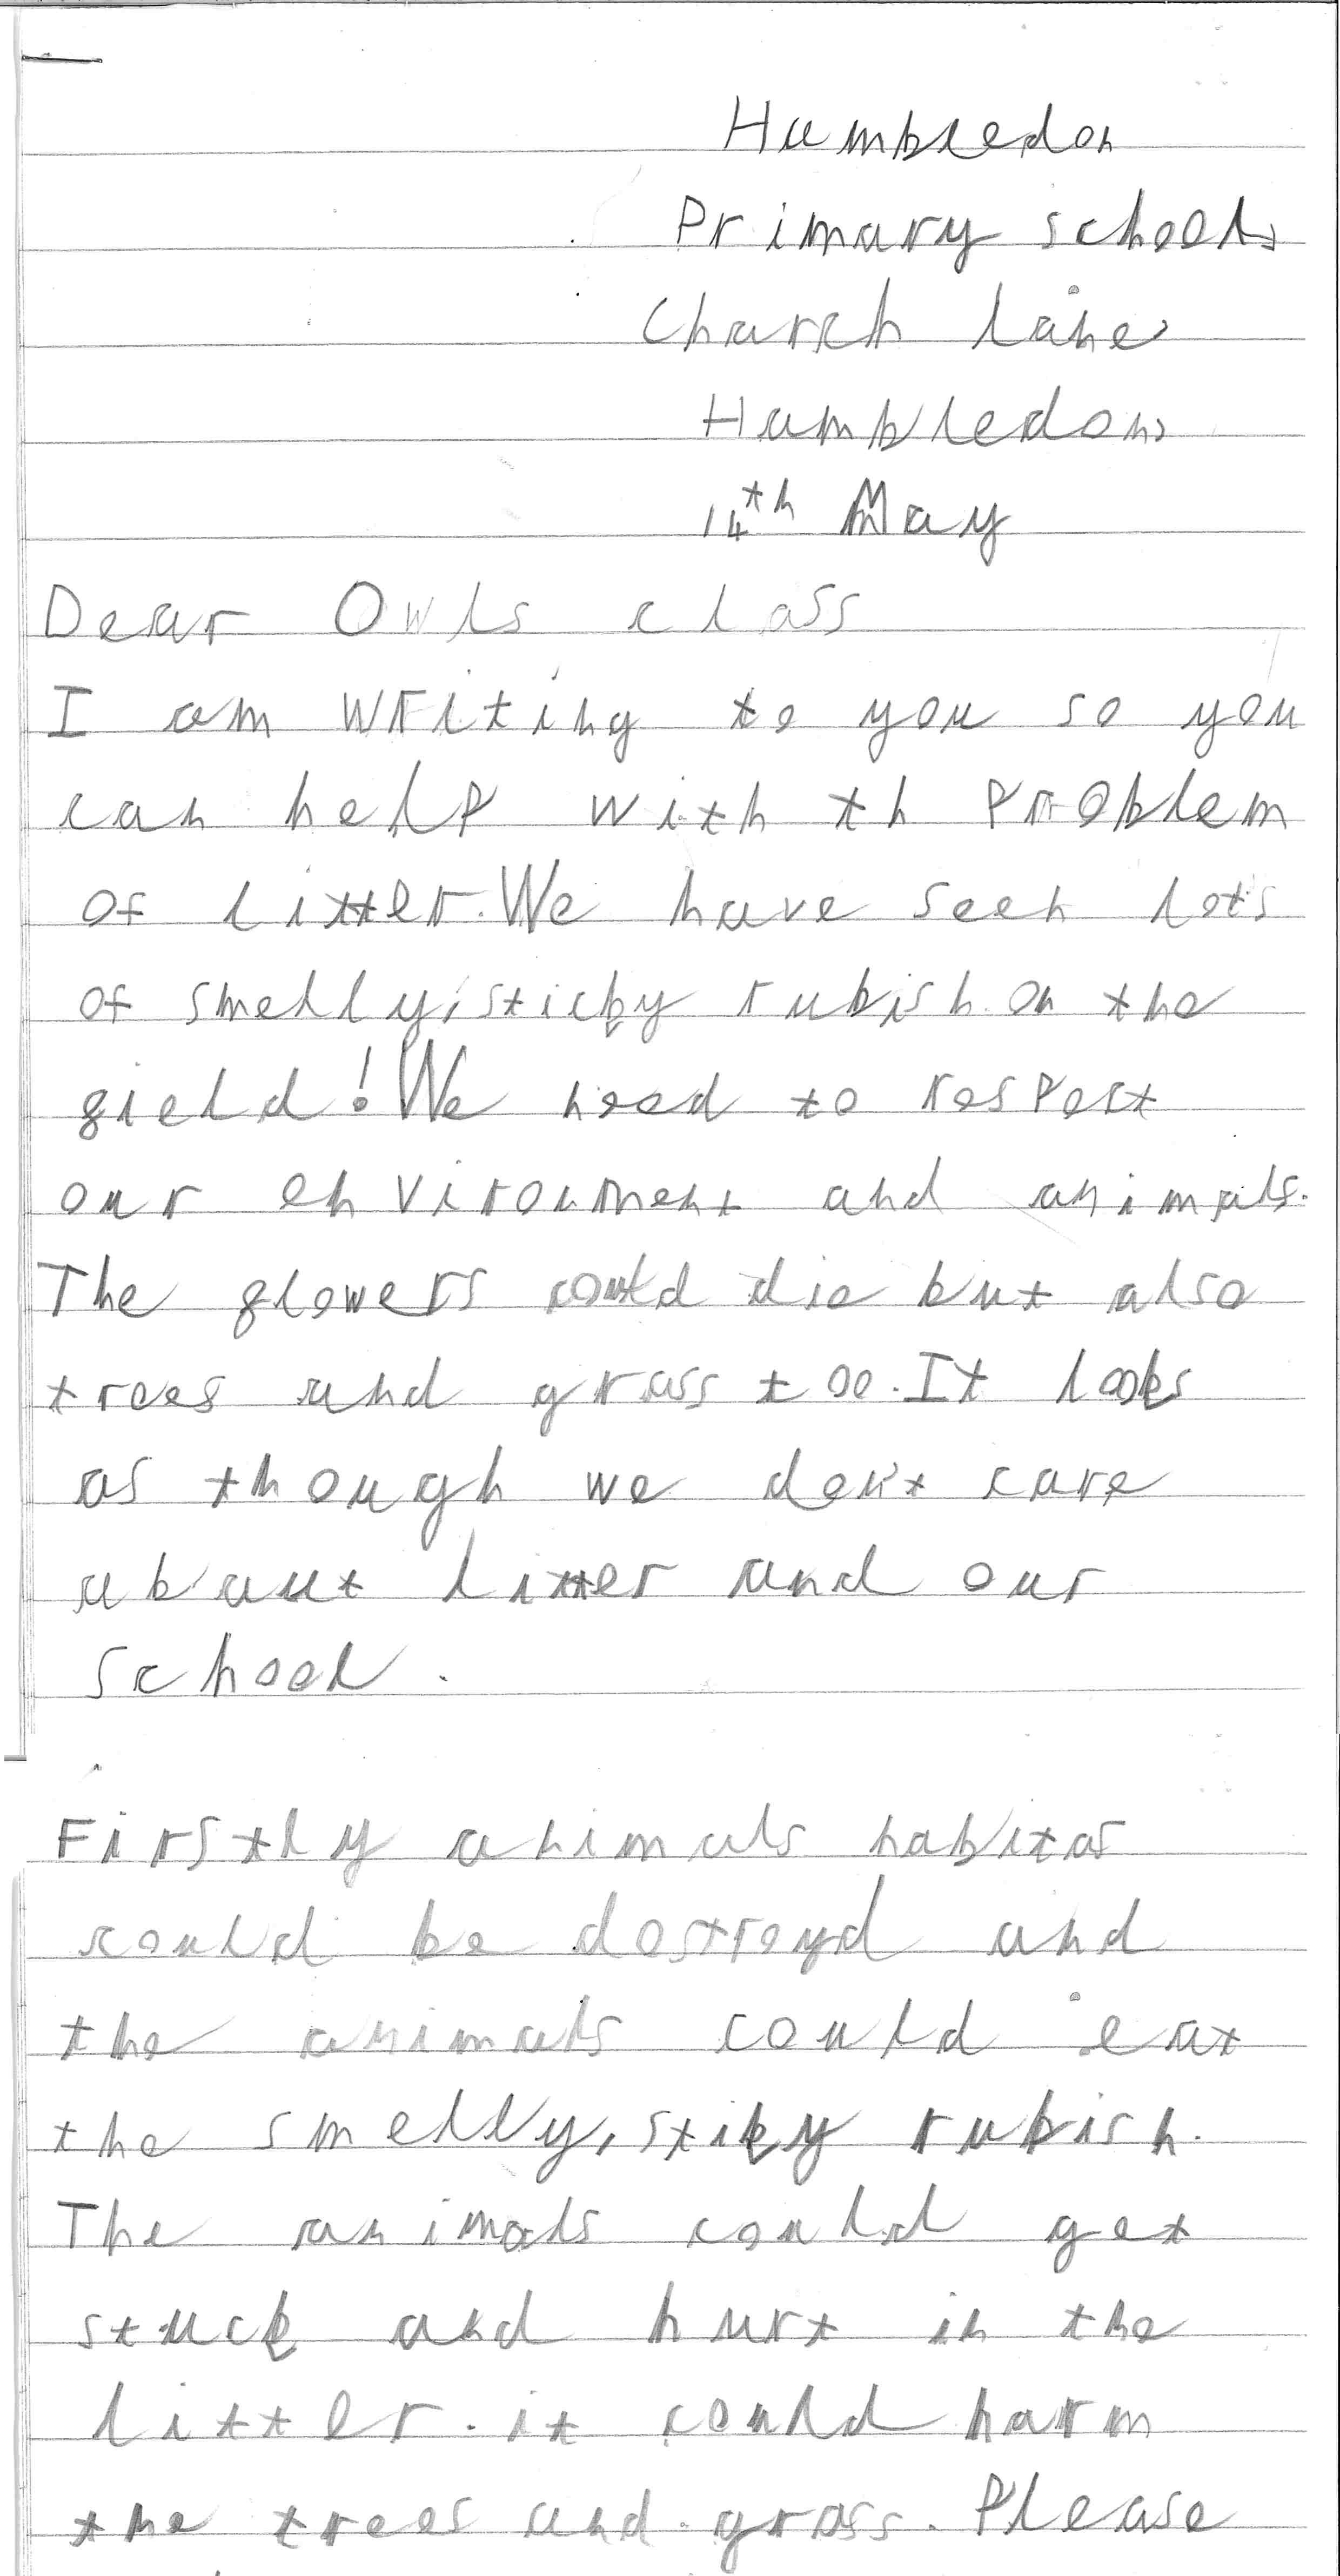 Humbledon
Primary school,
Church lane,
Humbledon,
14th May
Dear Owls class
I am writing to you so you
can help with th problem
of litter. We have seen lots
of smelly, sticky rubish on the
field! We need to respect
our envirounment and animals.
The flowers could die but also
trees and grass too. It looks
as though we don't care
abaut litter and our
school.
Firstly animals habitas
could be destroyd and
the animals could eat
the smelly, stiky rubish.
The animals could get
stuck and hurt in the
litter. it could harm
the trees and grass. Please